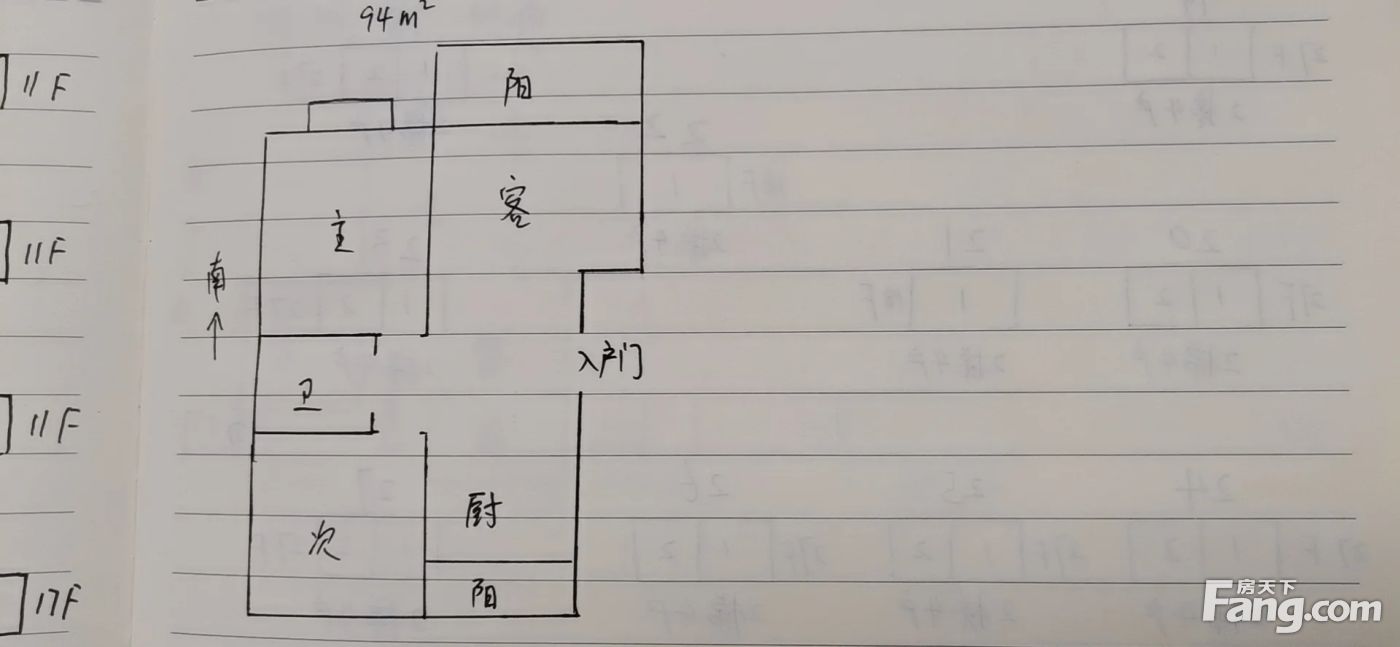 94m²
阳
11F
客
主
11F
南
入户门
卫
11F
厨
次
阳
17F
房天下
Fang.com